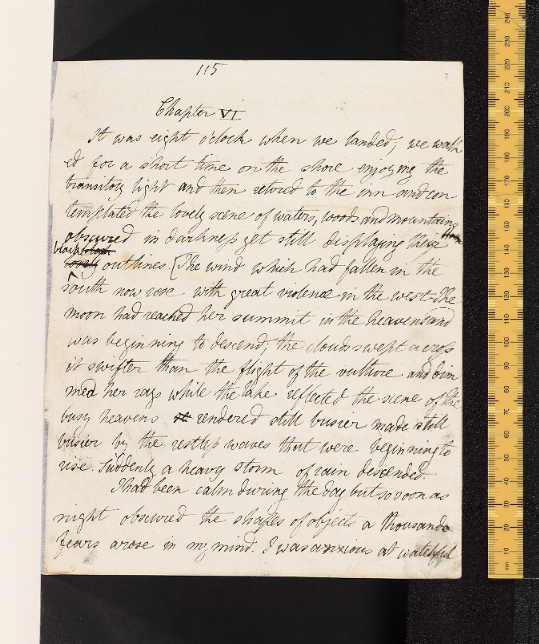 115
Chapter VI
It was eight o'clock when we landed; we walk
ed for a short time on the shore enjoying the
transitory light and then retired to the inn and con
templated the lovely scene of waters, woods and mountains
obscured in darkness yet still displaying their
black
outlines. The wind which had fallen in the
south now rose with great violence in the west. The
moon had reached her summit in the heavens and
was beginning to descend, the clouds swept across
it swifter than the flight of the vulture and dim
med her rays while the lake reflected the scene of the
busy heavens rendered still busier made still
busier by the restless waves that were beginning to
rise. Suddenly a heavy storm of rain descended.
I had been calm during the day but so soon as
night obscured the shapes of object a thousand
fears arose in my mind. I was anxious at watchful